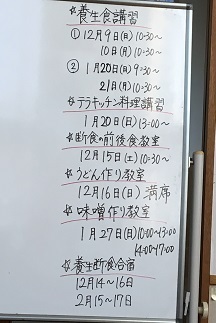 ☆養生食講習
① 12月9日(日)10:30～
10日(月)10:30～
② 1月20日(日)9:30～
21日(月)10:30～
☆テラキッチン料理講習
1月20日(日)13:00～
☆断食の前後食教室
12月15日(土)10:30～
☆うどん作り教室
12月16日(日)満席
☆味噌作り教室
1月27日(日)10:00~13:00
14:00~17:00
☆養生断食合宿
12月14～16日
2月15～17日